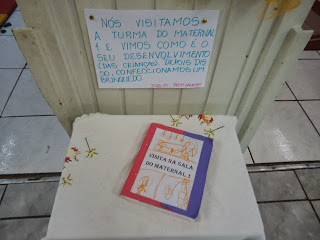 NÓS VISITAMOS
A TURMA DO MATERNAL
I E VIMOS COMO É O
SEU DESENVOLVIMENTO
(DAS CRIANÇAS). DEPOIS DIS
SO, CONFECCIONAMOS UM
BRINQUEDO.
VISITA NA SALA
DO MATERNAL I